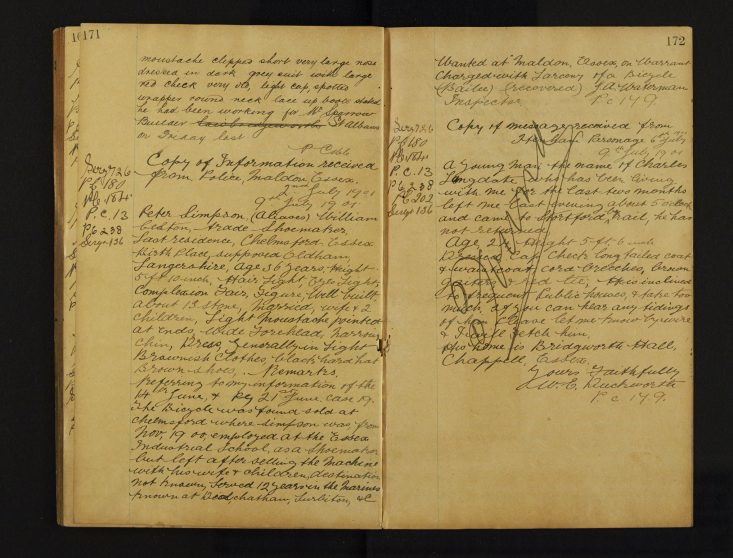 171
moustache clipped short very large nose
dressed in dark grey suit with large
red check very old, light cap, spotted
wrapper round neck lace up boots stated
he had been working for Mr Sparrow
Builder St Albans
on Friday last
P. Cobb
Copy of Information received
from Police, Maldon, Essex
2nd July 1901
9th July 1901
Sergt 726
PC 180
184
P.C. 13
PC 238
Sergt 136
Peter Simpson, (aliases) William
trade Shoemaker,
Last residence, Chelmsford Essex
Birth Place, supposed Oldham,
Lancershire, Age 36 years, Height
5 ft 10 inch, Hair Light, Eyes Light,
Complexion Fair, Figure, Well built
about 13 stone, Married, wife & 2
Children, Light moustache pointed
at ends, wide Forehead, narrow
Chin, Dress, Generally in Light
Brownish Clothes, black hard hat
Brown Shoes, Remarks,
Referring to my information of the
14th June, & PG 21st June, case 19.
The Bicycle was found sold at
Chelmsford where Simpson was, from
Nov, 1900, employed at the Essex
Industrial School, as a Shoemaker
but left after selling the Machine
with his wife & children, destination
not known, Served 12 years in the Marines
known at Chatham, Surbiton, &c
172
Wanted at Maldon, Essex, on Warrant
Charged with Larceny of a Bicycle
(Bailee) (recovered) J.A. Waterman
Inspector P.c 179
Copy of message received from
Parsonage 6th July
9th July 1901
Sergt 726
PC 180
184
P.C. 13
PC 238
PC 202
Sergt 136
A young man the name of Charles
Langdale who has been living
with me for the last two months
left me last evening about 5 oclock
and came to Stortford Rail, he has
not returned
Age 21 Height 5 ft. 6 inch
Dressed Cap Check long tailed coat
& waistcoat cord breeches, brown
gaiters red tie, He is inclined
to frequent public houses, & take too
much, if you can hear any tidings
of him Please let me know by wire
& I will fetch him
His home is Bridgworth Hall,
Chappell, Essex.
Yours Faithfully
W. C. Duckworth
P.c 179.